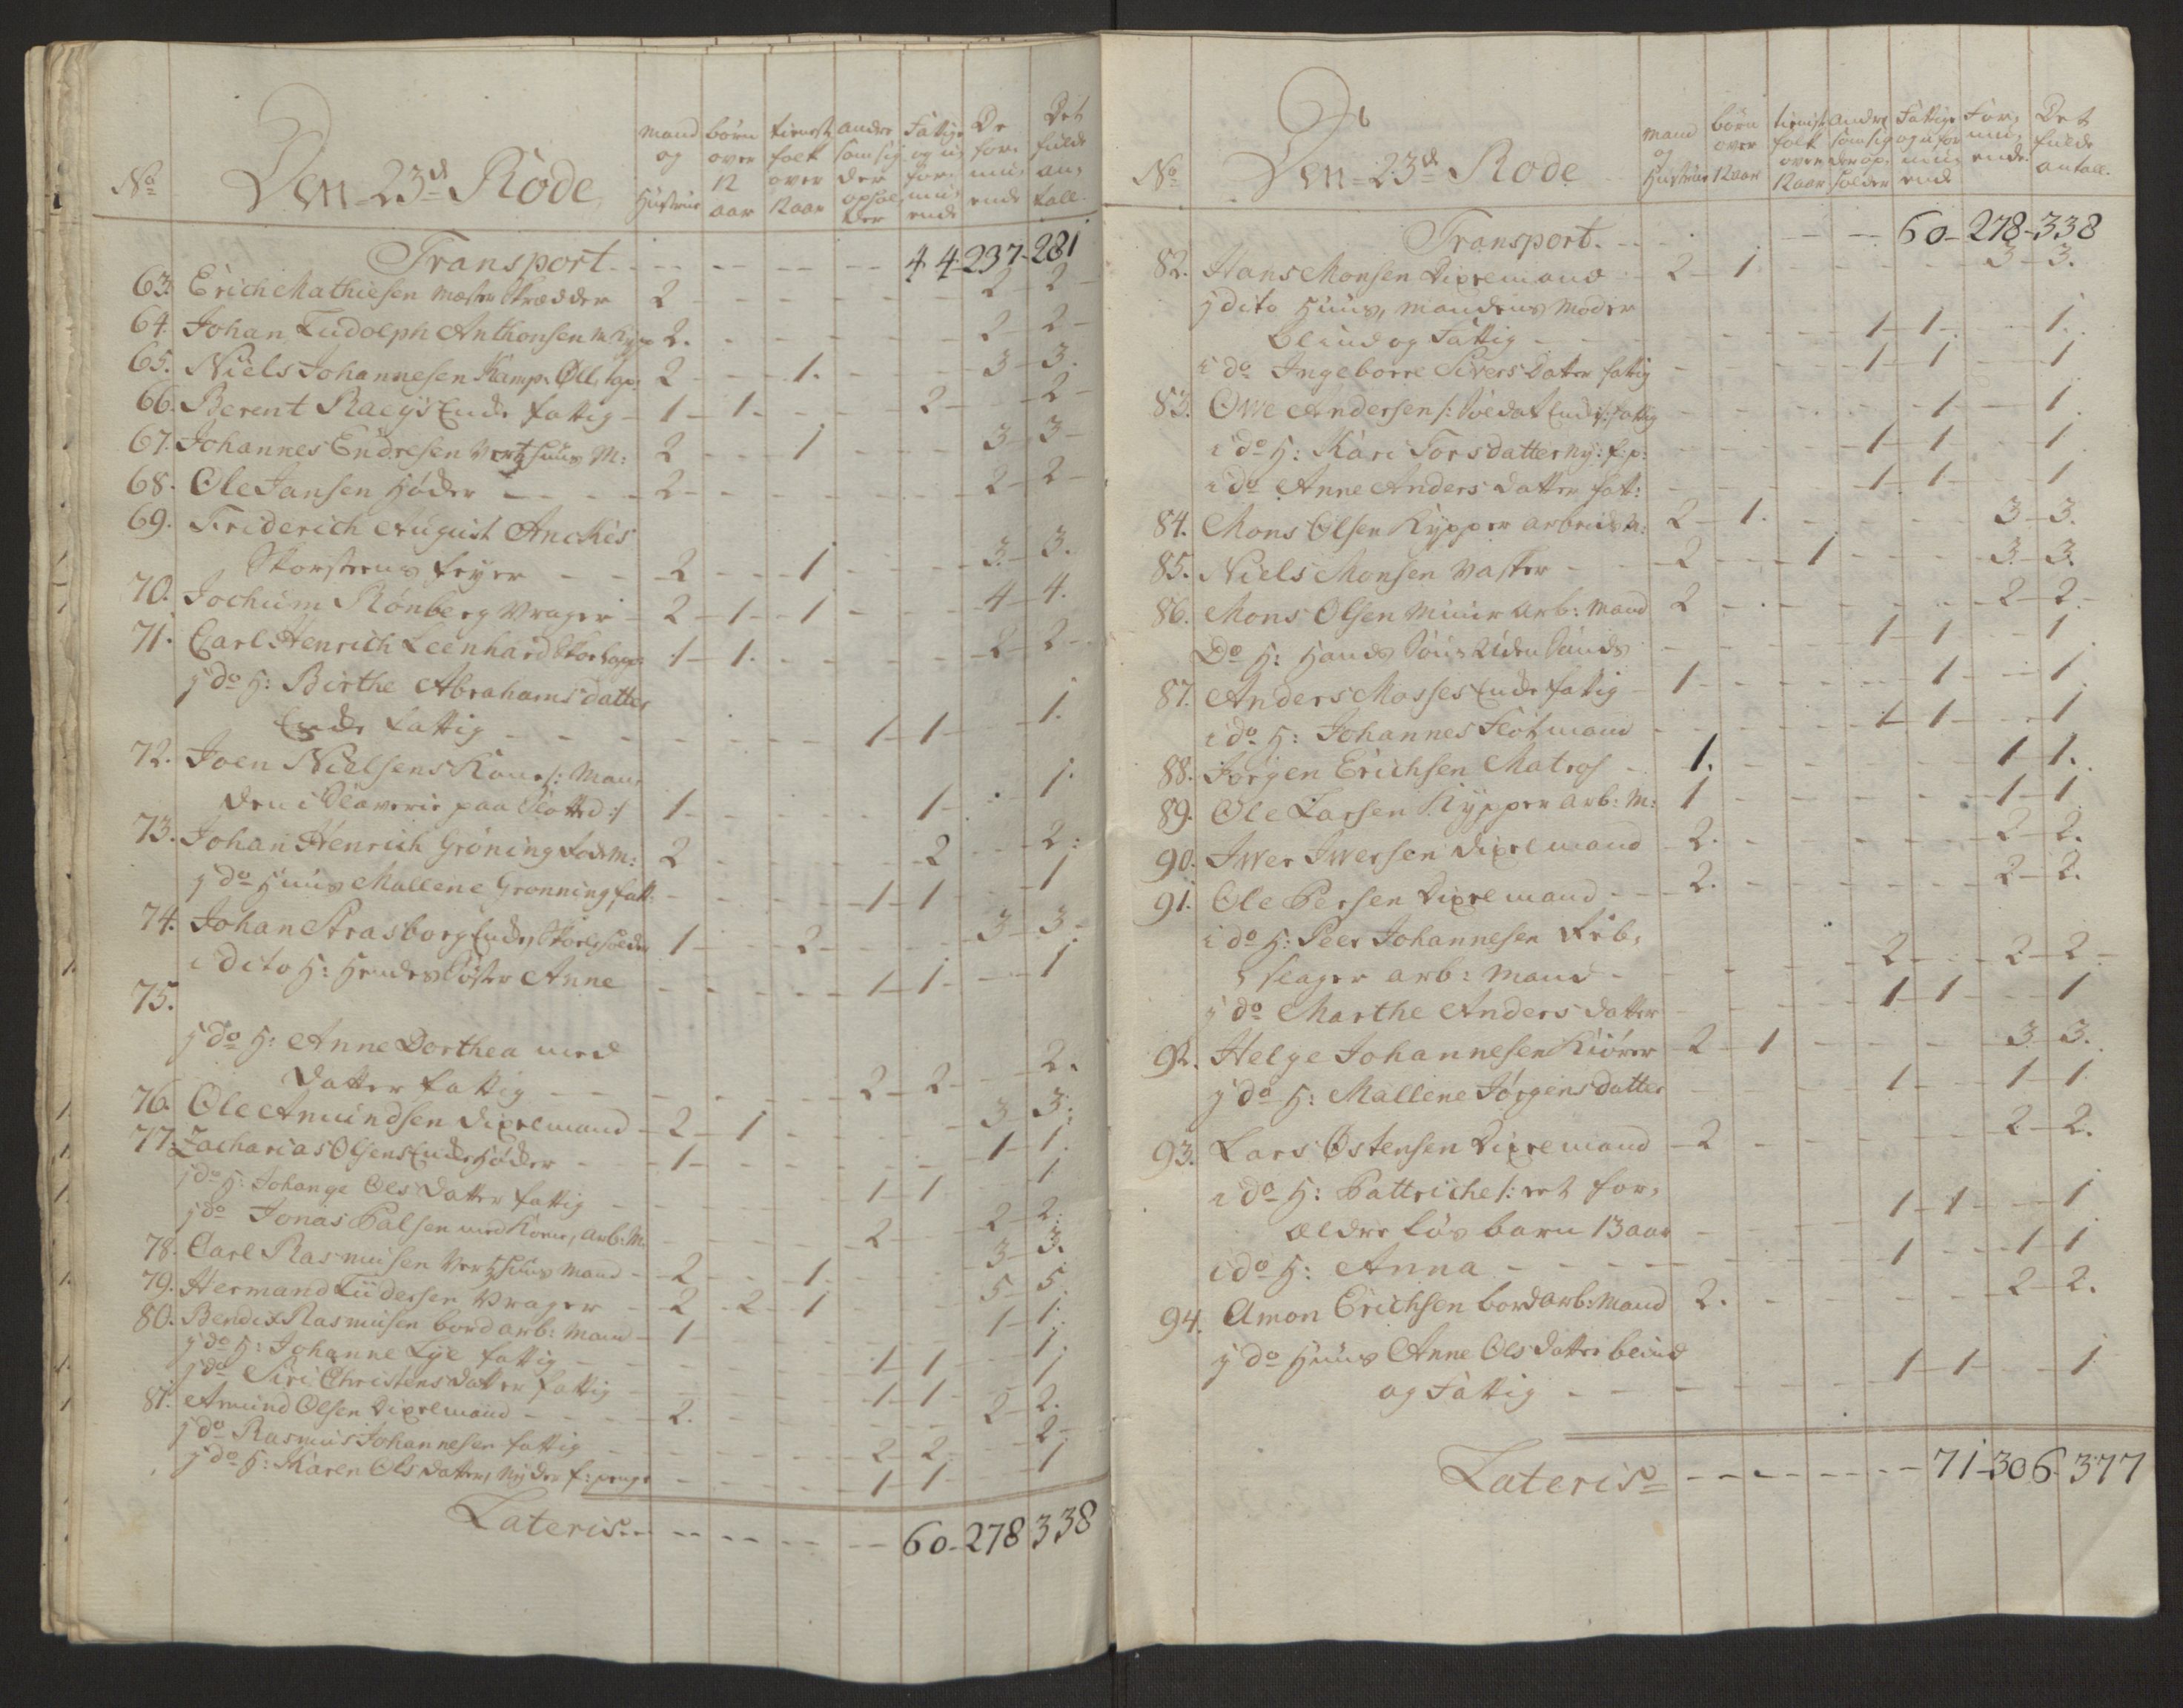 No Den 23d Rode mand og Hustrue børn over 12 aar tienste folk over 12 aar andre som sig der opholder Fattige og u formuende De formuende Det fulde antall
Transport - - - - - 44-237-281
63. Erich Mathiesen Mester Skrædder 2 - - - - - 2-2
64. Johan Ludolph Anthonsen 2. - - - - - 2-2
65. Niels Johannesen Kamp. Øll tap: 2 - - 1. - - 3-3.
66. Berent Raeys Enke fattig 1-1. - - - 2 - 2
67. Johannes Endresen Vertshuus M: 2 - - 1 - - 3-3
68. Ole Jansen Høder - - - 2 - - - - - 2-2
69. Friderich August Anckes
Skorsteens feyer - - 2 - - 1 - - 3-3.
70. Jochum Rønberg Vrager 2-1-1 - - 4-4.
71. Carl Henrich Leenhard 1-1. - - - - 2-2
i do H: Birthe Abrahams datter
Enke fattig - - - - - 1-1 - 1.
72. Joen Nielsens Kone /: Man,
den i Slaverie paa Slotted :/ 1 - - - - 1 - 1.
73. Johan Henrich Grøning 2 - - - - 2 - 2:
i do Huus Mallene Grønning fatt. - - - - 1-1 - 1
74. Johan Strasborg Enke, Skoleholder 1 - - 2 - - - 3-3
i dito H: Hendes Søster Anne - - - - 1-1 - - 1
75.
i do H: Anne Dorthea med
datter fattig - - - - 2-2 - 2.
76. Ole Amundsen Dixelmand 2-1 - - - 3 3.
77. Zacharias Olsens Enke Høder - 1 - - - - - 1-1.
i do H: Johange Ols datter fattig - - - 1-1 - 1
i do Jonas Palsen med Kone, arb: M: - - - 2 - 2-2.
78. Carl Rasmusen Vertshuus Mand - 2 - - 1. - - 3-3.
79. Hermand Lüdersen Vrager - 2-2-1 - - 5-5.
80. Bendix Rasmusen bord arb: Mand 1 - - - - - 1-1.
i do H: Johanne Lye fattig - - - - 1-1 - 1.
i do Siri Christens datter fattig - - - - 1-1 - 1
81. Amund Olsen Dixelmand - - - 2. - - - - - 2-2.
i do Rasmus Johannesen fattig - - - - 2-2 - 2-
i do H: Karen Ols datter, Nyder f: penge - - - - 1-1 - 1
Lateris - - - - - 60-278 338
No Den 23d Rode mand og Hustrue børn over 12 aar tienist folk over 12 aar andre som sig der op holder Fattige og u for muende For, mu, ende. Det fulde antall.
Transport. - - - - - 60-278-338
82. Hans Monsen Dixelmand 2-1 - - - - 3-3.
i dito Huus, Mandens Moder
blind og Fattig - - - - 1-1. - 1.
i do Ingeborre Sivers Dater fattig - - - - 1-1 - 1
83. Owe Andersen /: Soldat Enke :/ fattig - - - - - 1 - 1.
i do H: Kari Tors datter ny: f: p: - - - - 1-1 - 1
i do Anne Anders datter fat: - - - 1-1 - 1
84. Mons Olsen Kypper arbeids M: 2-1. - - - - 3-3.
85. Niels Monsen Vaster - - 2 - - 1 - - - 3-3.
86. Mons Olsen Muur arb: Mand 2 - - - - - 2-2.
Do H: Hands Søn - - - - 1-1 - 1
87. Anders Mosses Enke fattig 1 - - - - 1 - 1.
i do H: Johannes Flotmand - - - - 1-1 - 1
88. Jørgen Erichsen Matros 1. - - - - - 1 1.
89. Ole Larsen Kypper arb: M: 1 - - - - - 1-1
90. Iwer Iwersen Dixelmand 2. - - - - - 2-2.
91. Ole Persen Dixelmand - - 2. - - - - - 2-2.
i do H: Peer Johannesen Reb,
slager arb: Mand - - - - - 2 - 2-2-
i do Marthe Anders datter - - - - 1-1 - 1
92. Helge Johannesen Kiører 2-1 - - - - 3-3.
i do H: Mallene Jørgens datter - - - - 1 - 1-1
93. Lars Østensen Dixelmand 2 - - - - - 2-2.
i do H: Battriche /: et for,
ældre løs barn 13 aar - - - - 1-1 - 1
i do H: Anna - - - - - 1 - 1-1
94. Amon Erichsen bord arb: Mand 2. - - - - - 2-2.
i do Huus Anne Ols datter blind
og Fattig - - - - - 1-1 - 1
Lateris - - - - - - 71-306-377